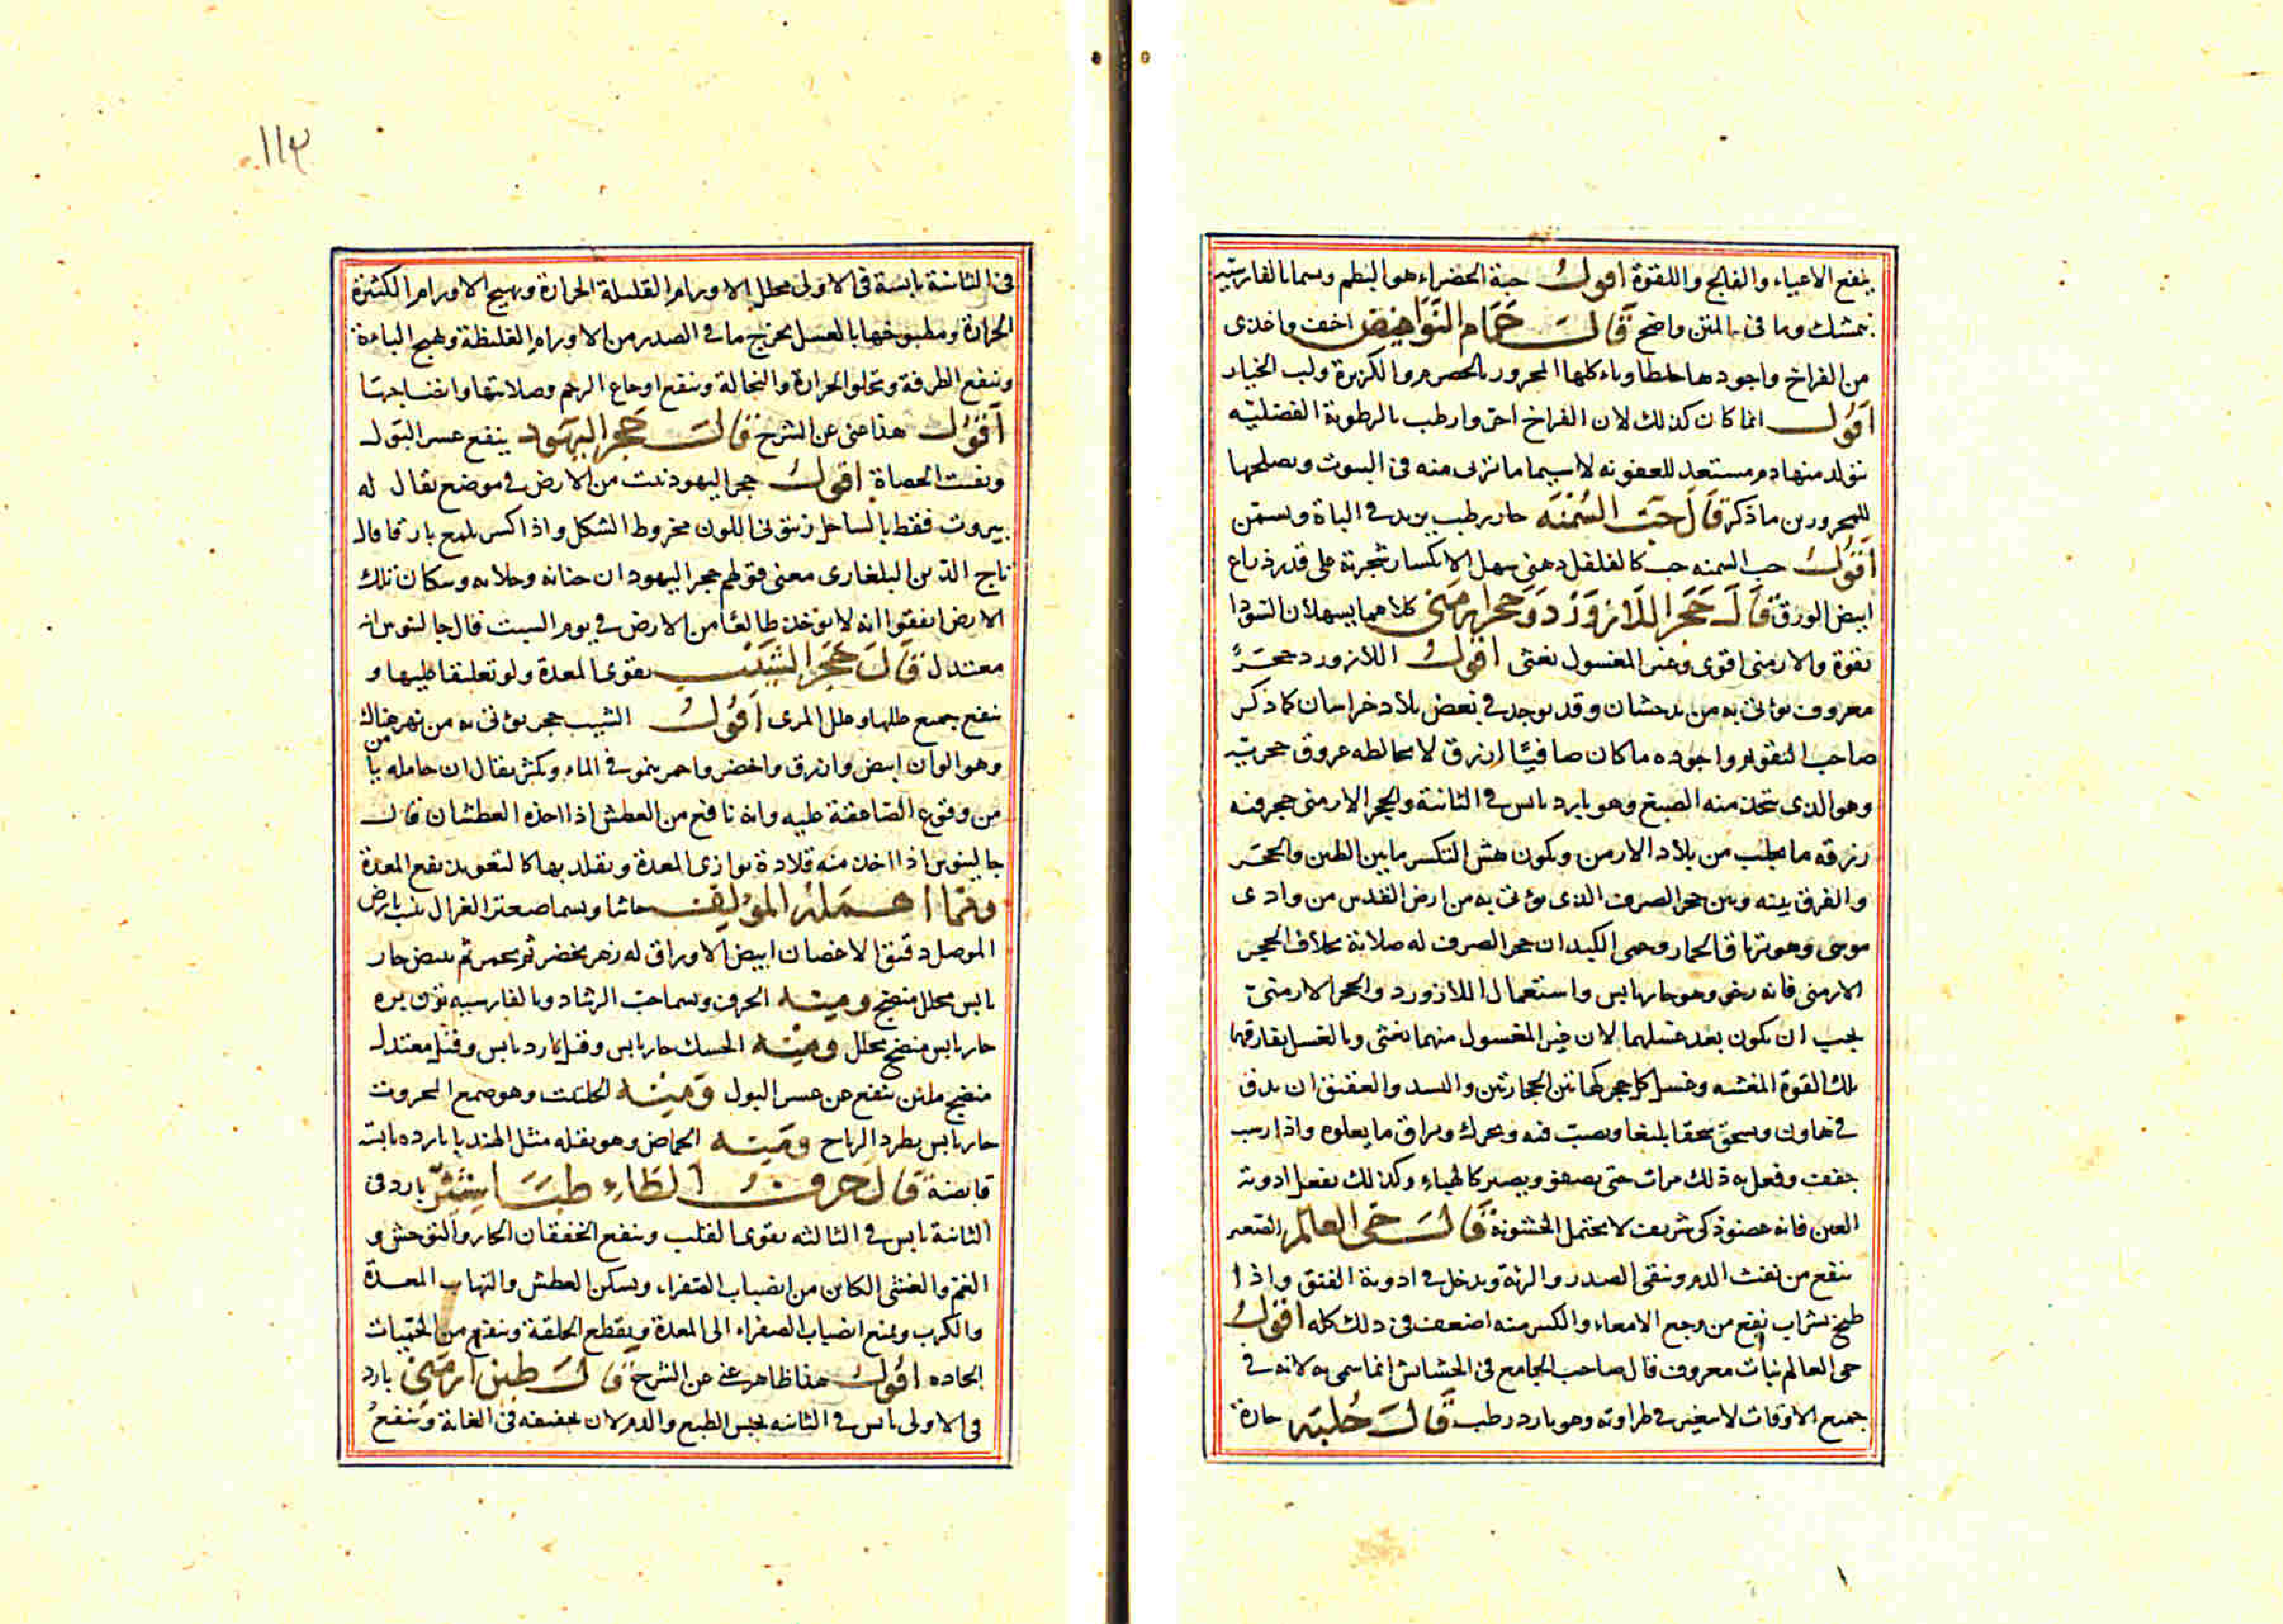 ينفع الاعياء والفالج واللقوة اقول حبة الخضراء هو البطم ويسما بالفارسية
بمشك وما في المتن واضح قال حمام النواهض اخف واغذى
من الفراخ واجودها خلطا وياءكلها المحرور بالحصرم والكزبرة ولب الخيار
اقول انما كان كذلك لان الفراخ احر وارطب بالرطوبة الفضليه
تتولد منها دم مستعد للعفونه لاسيما ما تربى منه في البيوت ويصلحها
للمحرورين ما ذكر قال حب السمنه حار رطب يزيد في الباة ويسمن
اقول حب السمنه حب كالفلفل دهني سهل الانكسار شجرته على قدر ذراع
ابيض الورق قال حجر اللازورد وحجر ارمني كلاهما يسهلان السودا
بقوة والارمني اقوى وغير المغسول يغثى اقول اللازورد حجر
معروف يؤتى به من بدخشان وقد يوجد في بعض بلاد خراسان كما ذكر
صاحب التقويم واجوده ما كان صافيا ازرق لا يخالطه عروق حجرية
وهو الذي يتخذ منه الصبغ وهو بارد يابس في الثانية والحجر الارمني حجر فيه
زرقه ما يجلب من بلاد الارمن ويكون هش التكسر ما بين الطين والحجر
والفرق بينه وبين حجر الصرف الذي يؤتى به من ارض القدس من وادى
موسى وهو ترياق الخمار وحمى الكبد ان حجر الصرف له صلابة بخلاف الحجر
الارمنى فانه رخو وهو حار يابس واستعمال اللازورد والحجر الارمني
يجب ان يكون بعد غسلهما لان غير المغسول منهما يغثى وبالغسل يفارقهما
تلك القوة المغشيه وغسل كل حجر كهاتين الحجارتين والبسد والعقيق ان يدق
في هاون ويسحق سحقا بليغا ويصب فيه ويحرك ويراق ما يعلوه واذا رسب
جفف وفعل به ذلك مرات حتى يصفو ويصير كالهباء وكذلك يفعل ادوية
العين فانه عضو ذكى شريف لا يحتمل الخشونة قال حى العالم الصغير
ينفع من نفث الدم وينقى الصدر والرئة ويدخل في ادوية الفتق واذا
طبخ بشراب نفع من وجع الامعاء والكبير منه اضعف في ذلك كله اقول
حى العالم نبات معروف قال صاحب الجامع في الحشائش انما سمى به لانه في
جميع الاوقات لا يتغير في طراوته وهو بارد رطب قال حلبه حارة
١١٣
في الثانية يابسة في الاولى محلل الاورام القليلة الحرارة ويهيج الاورام الكثيرة
الحرارة ومطبوخها بالعسل يخرج ما في الصدر من الاورام الغليظة ويهيج الباءة
وينفع الطرفة وتجلو الحرارة والنخالة وينفع اوجاع الرحم وصلابتها وانضاجها
اقول هذا غنى عن الشرح قال حجر اليهود ينفع عسر البول
ويفتت الحصاة اقول حجر اليهود نبت من الارض في موضع يقال له
بيروت فقط بالساحل زيتوني اللون مخروط الشكل واذا كسر يلمع بارقا قال
تاج الدين البلغارى معنى قولهم حجر اليهود ان وسكان تلك
الارض اتفقوا انه لا يوخذ طالعا من الارض في يوم السبت قال جالينوس انه
معتدل قال حجر الشيب يقوى المعدة ولو تعليقا عليها و
ينفع جميع عللها وعلل المرى اقول الشيب حجر يؤتى به من نهر هناك
وهو الوان ابيض وازرق واخضر واحمر ينمو في الماء ويكثر يقال ان حامله يأمن
من وقوع الصاعقة عليه وانه نافع من العطش اذا اخذه العطشان قال
جالينوس اذا اخذ منه قلادة يوازى المعدة وتقلد بها كالتعويذ نفع المعدة
ومما اهمله المؤلف حاشا ويسما صعتر الغزال ينبت بارض
الموصل دقيق الاغصان ابيض الاوراق له زهر يخضر ثم يحمر ثم يبيض حار
يابس محلل منضج ومنه الحرف ويسما حب الرشاد وبالفارسيه
حار يابس منضج محلل ومنه الحسك حار يابس وقيل بارد يابس وقيل معتدل
منضج ملين ينفع من عسر البول ومنه الحلتيت وهو صمغ المحروت
حار يابس يطرد الرياح ومنه الحماض وهو بقله مثل الهندبا بارده يابسة
قابضة قال حرف الطاء طباشير بارد في
الثانية يابس في الثالثه يقوى القلب وينفع الخفقان الحار والتوحش و
الغم والغشى الكاين من انصباب الصفراء ويسكن العطش والتهاب المعدة
والكرب ويمنع انصباب الصفراء الى المعدة ويقطع الخلفة وينفع من الحميات
الحاده اقول هذا ظاهر غنى عن الشرح قال طين ارمني بارد
في الاولى يابس في الثانيه يحبس الطبع والدم لان تجفيفه في الغاية وينفع